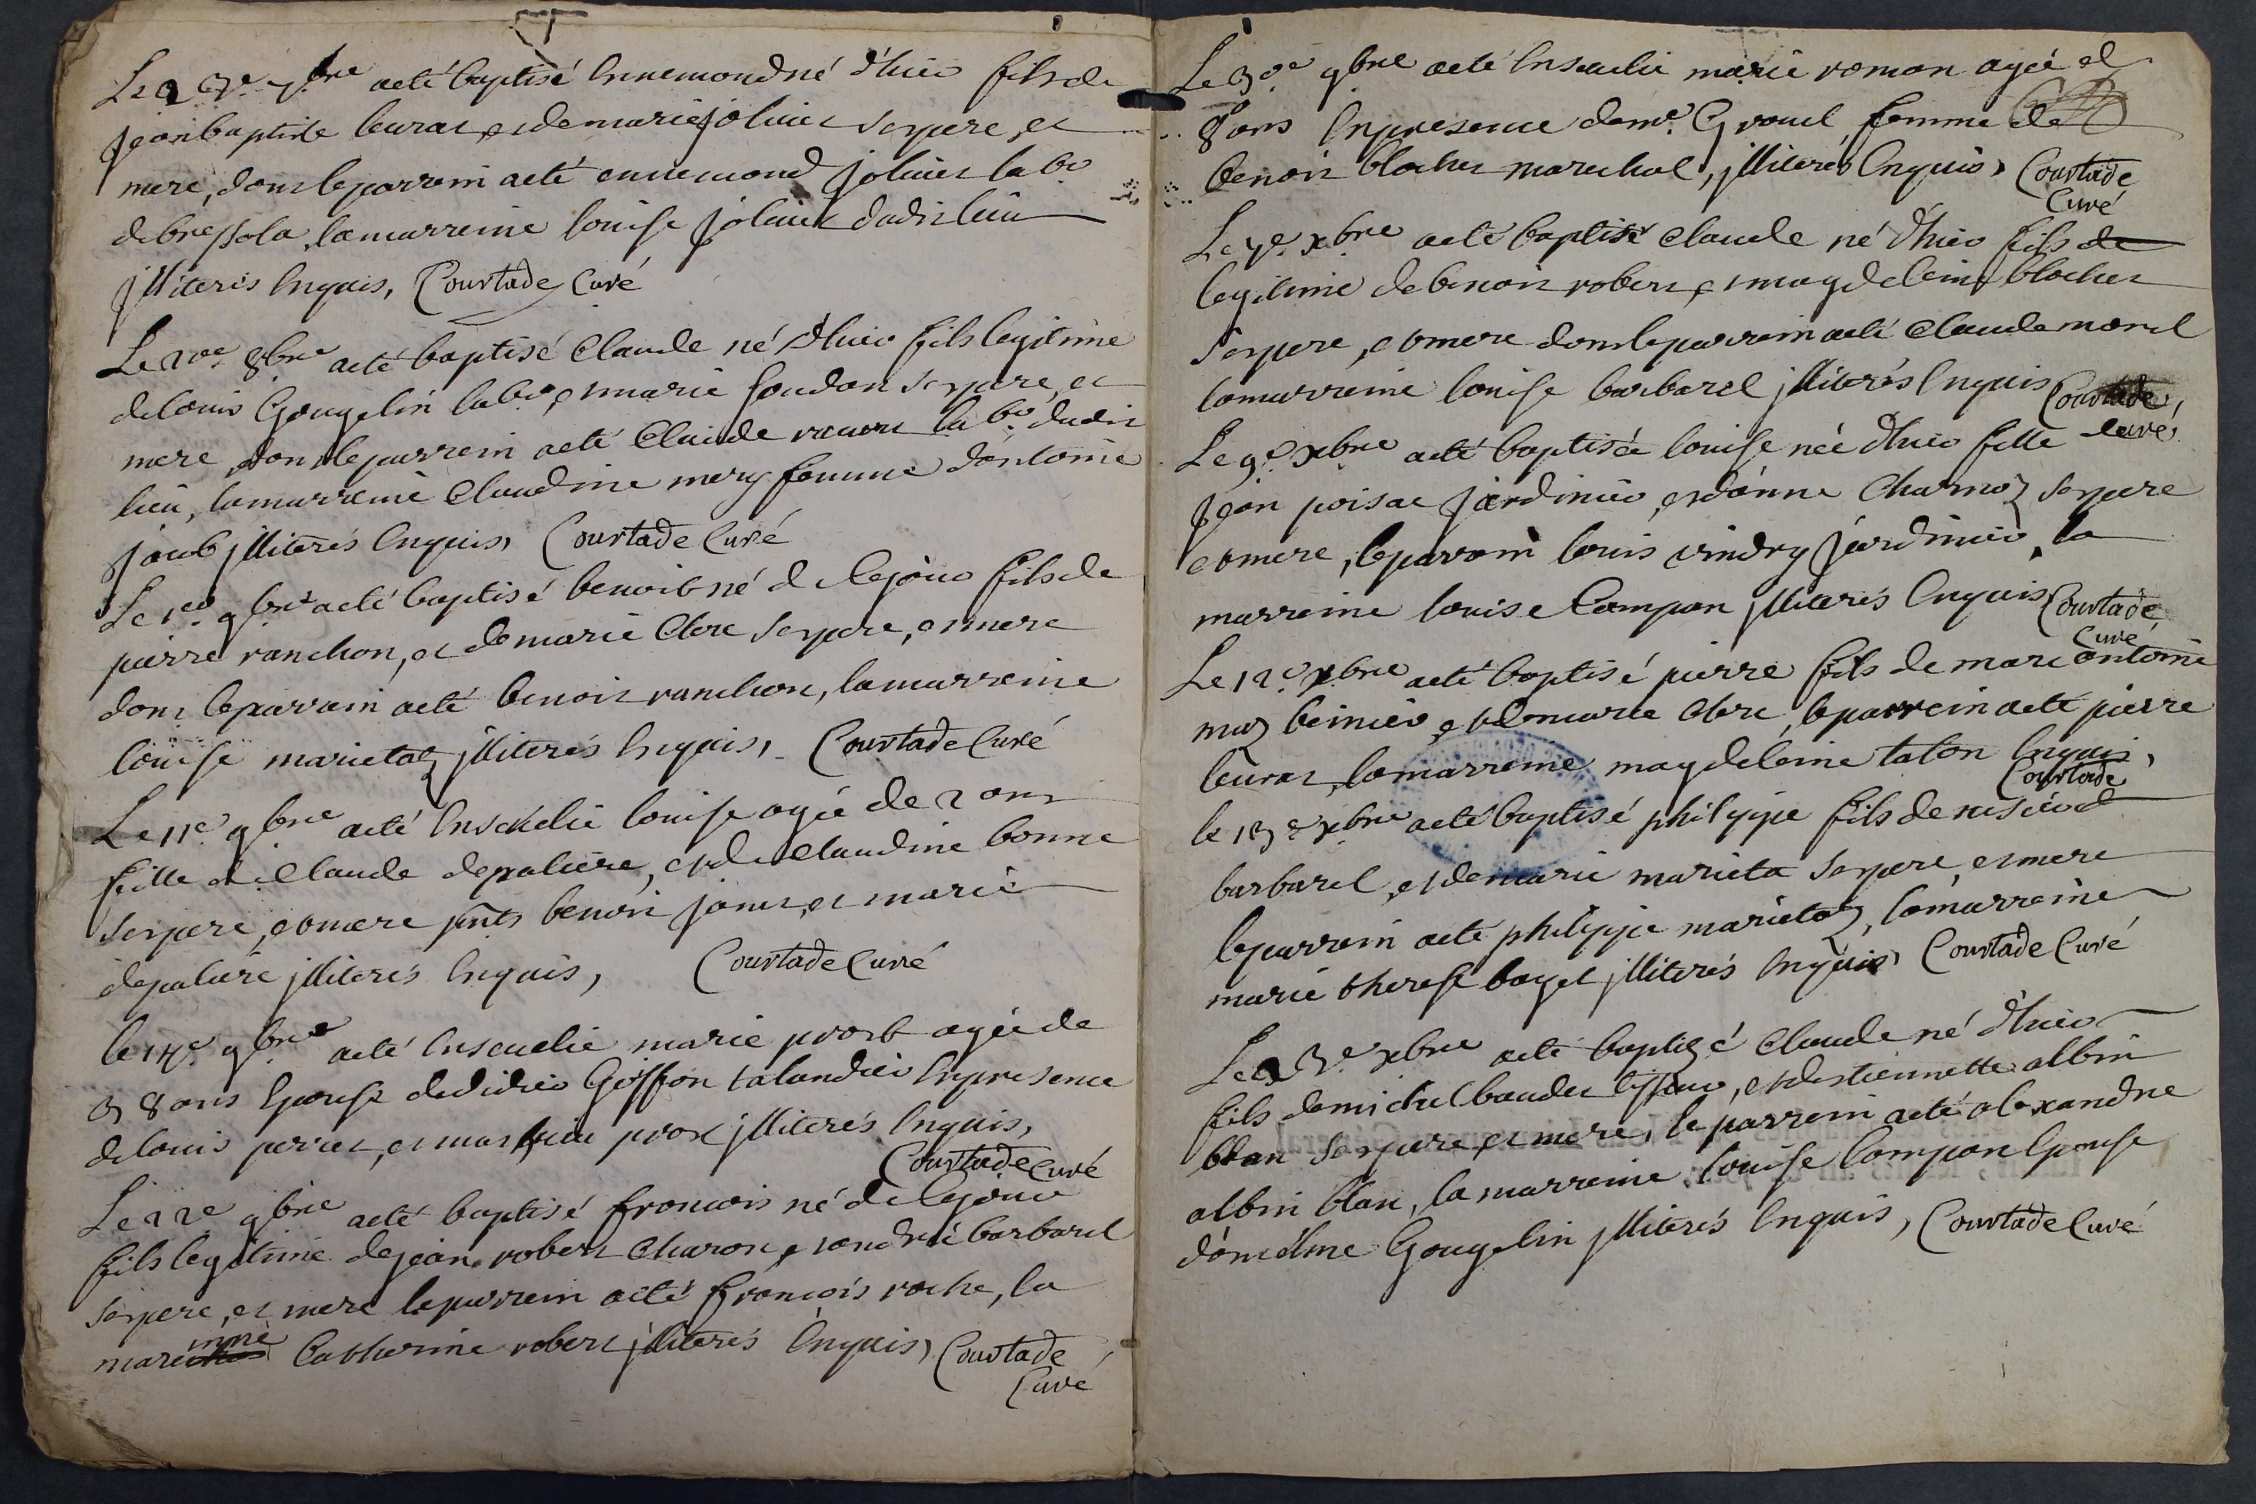 Le 27e 7bre a eté baptisé Ennemond né d'hier fils de
Jean baptiste leurat et de marie jolivet ses pere et
mere, dont le parrein a eté ennemond jolivet labo
de bressola, la marreine louise jolivet dudit lieu
jlliterés Enquis, Courtade Curé
Le 20e 8bre a eté baptisé Claude né d'hier fils legitime
de louis Gougelin labo, et marie foudon ses pere, et
mere dont le parrein a eté Claude labo. dudit
lieu, la marreine Claudine mery femme d'antoine
jlliterés Enquis, Courtade Curé
Le 1er 9bre a eté baptisé benoit né de ce jour fils de
pierre ranchon, et de marie Clere ses pere, et mere
dont le parrain a eté benoit ranchon, la marreine
louise marietaz jlliterés Enquis, Courtade Curé
Le 11e 9bre a eté Ensevelie louise agée de 2 ans
fille de Claude depaliere, et de Claudine bonne
ses pere, et mere pnts benoit janet, et marie
depaliere jlliterés Enquis, Courtade Curé
le 14e 9bre a eté Ensevelie marie prost agée de
38 ans Epouse de didier Goiffon talandier En presence
de louis perret, et mathieu prost jlliterés Enquis,
Courtade Curé
Le 22e 9bre a eté baptisé francois né de ce jour
fils legitime de jean robert Charon, et andrée barbarel
ses pere, et mere le parrein a eté françois roche, la
mareinne Catherine robert jlliterés Enquis, Courtade
Curé
Le 30e 9bre a eté Ensevelie marie roman agée de
8 ans En presence de me. Grouel femme de
benoit blochet marechal, jlliterés Enquis, Courtade
Curé
Le 7e. xbre a eté baptisé Claude né d'hier fils de
legitime de benoit robert, et magdeleine blochet
ses pere, et mere dont le parrein a eté Claude morel
la marreine louise barbarel jlliterés Enquis Courtade,
Curé
Le 9e. xbre a eté baptisée louise née d'hier fille
jean poisat jardinier, et d'anne Charnoz ses pere
et mere, le parrein louis vindry jardinier, la
marreine louise Compan jlliterés Enquis, Courtade
Curé
Le 12e. xbre a eté baptisé pierre fils de marc antoine
muz beinier, et de marie Clere, le parrein a eté pierre
leurat, la marreine magdeleine taton Enquis,
Courtade
le 13e xbre a eté baptisé philippe fils de
barbarel, et de marie marieta ses pere, et mere
le parrein a eté philippe marietaz, la marreine
marie therese boget jlliterés Enquis, Courtade Curé
Le 23e xbre a eté baptizé Claude né d'hier
fils de michel baudet tisseur, et d'estiennette albin
blan ses pere, et mere, le parrein a eté alexandre
albin blan, la marreine louise Compan Epouse
d'ancelme Gougelin jlliterés Enquis, Courtade Curé